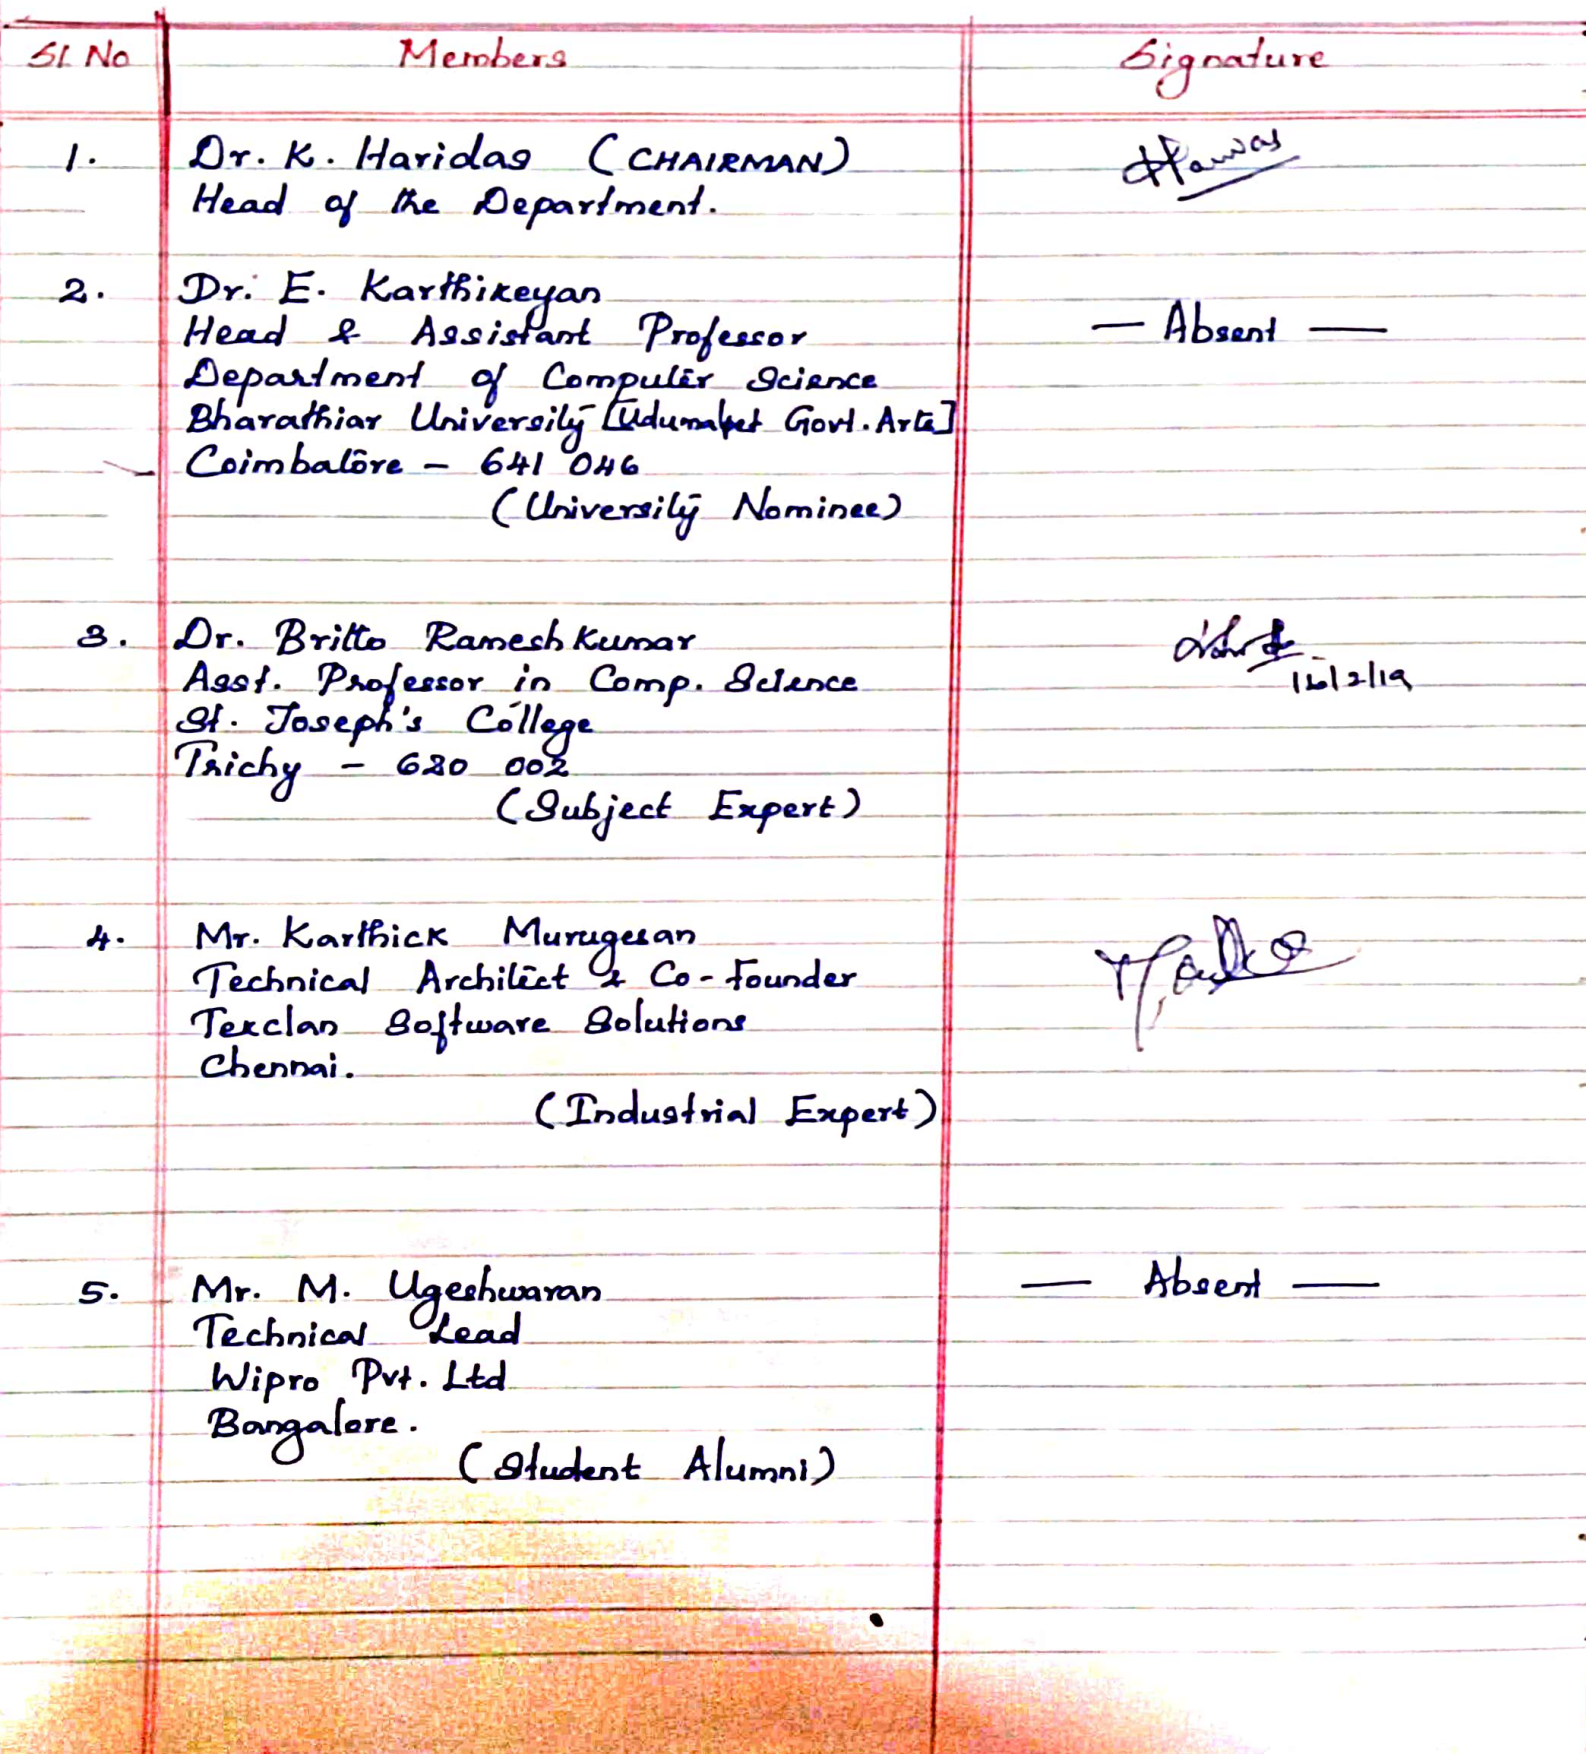 Sl. No Members Signature
1. Dr. K. Haridas (CHAIRMAN)
Head of the Department.
2. Dr. E. Karthikeyan
Head & Assistant Professor — Absent —
Department of Computer Science
Bharathiar University [Udumalpet Govt. Arts]
Coimbatore – 641 046
(University Nominee)
3. Dr. Britto Ramesh Kumar
Asst. Professor in Comp. Science 16/2/19
St. Joseph's College
Trichy – 620 002
(Subject Expert)
4. Mr. Karthick Murugesan
Technical Architect & Co-founder
Texclan Software Solutions
Chennai.
(Industrial Expert)
5. Mr. M. Ugeshwaran — Absent —
Technical Lead
Wipro Pvt. Ltd
Bangalore.
(Student Alumni)